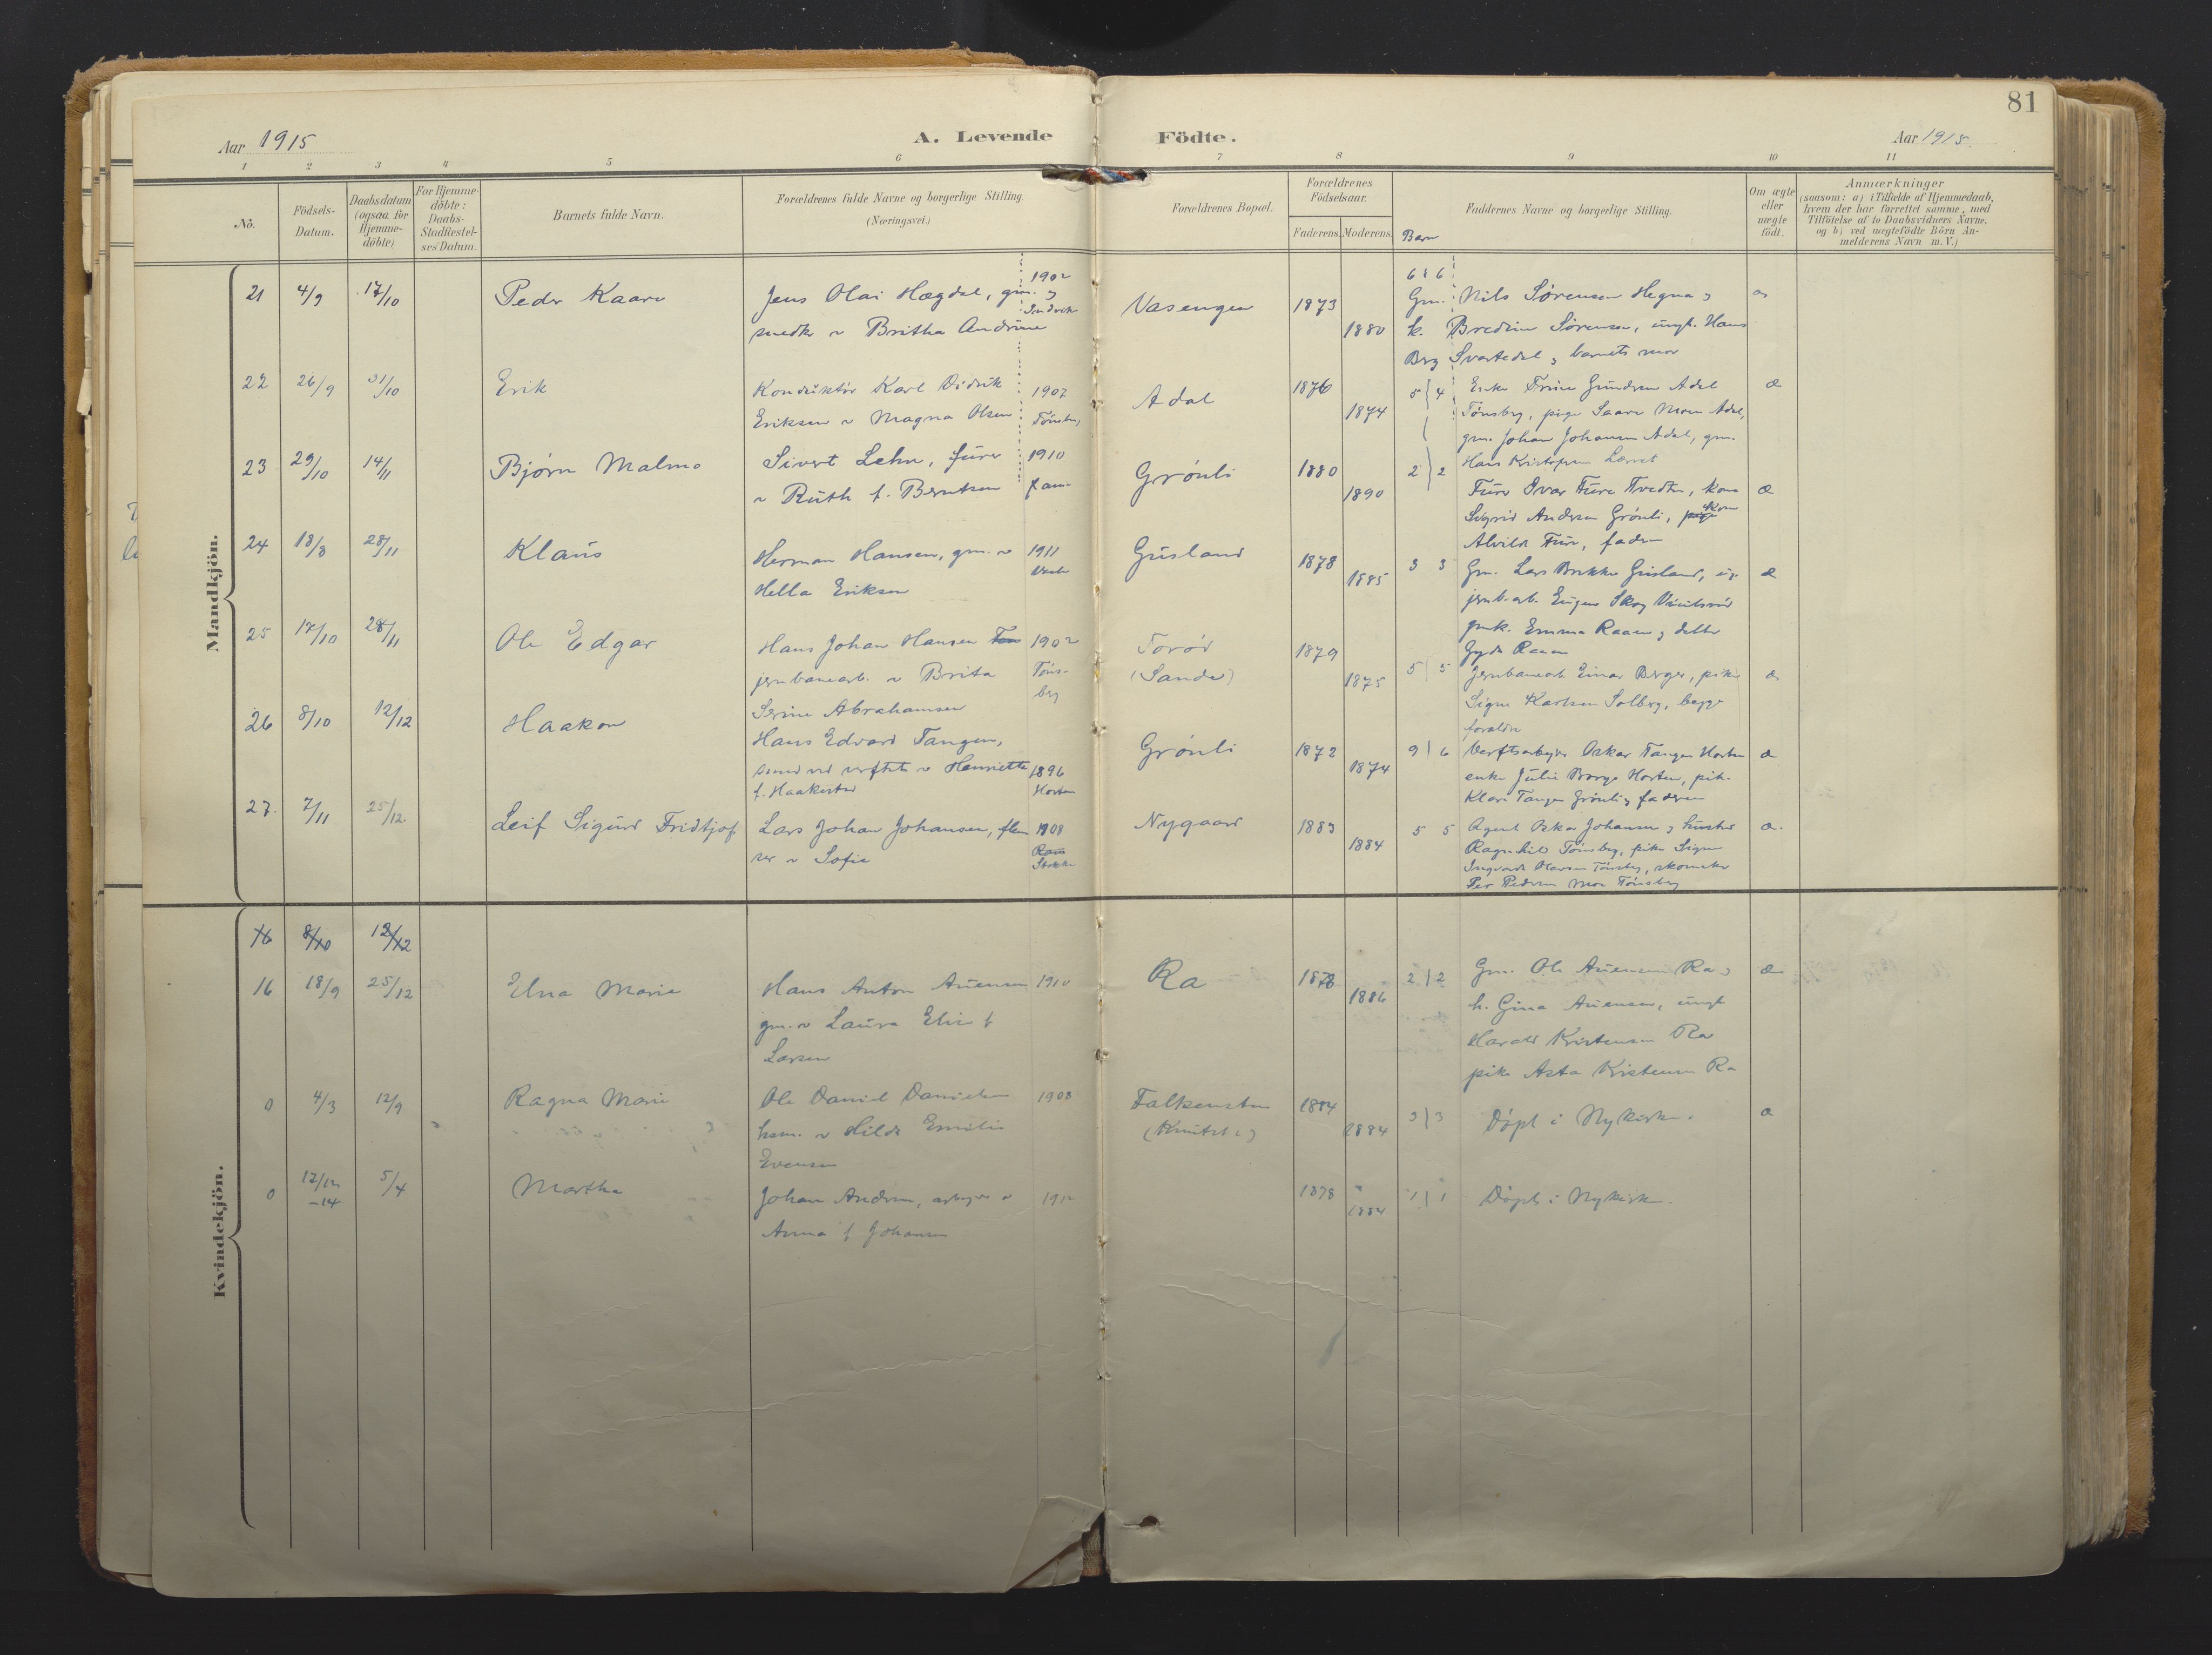 81
Aar 1915
A. Levende Födte.
Aar 1915.
1 2 3 4 5 6 7 8 9 10 11
No.
Födsels-
Datum.
Daabsdatum
(ogsaa for
Hjemme-
döbte)
For Hjemme-
döbte:
Daabs-
Stadfæstel-
ses Datum.
Barnets fulde Navn.
Forældrenes fulde Navne og borgerlige Stilling.
(Næringsvei.)
Forældrenes Bopæl.
Forældrenes
Födselsaar.
Faderens. Moderens.
Barn
Faddernes Navne og borgerlige Stilling.
Om ægte
eller
uægte
födt.
Anmærkninger
(saasom: a) i Tilfælde af Hjemmedaab,
hvem der har forrettet samme, med
Tilföielse af to Daabsvidners Navne.
og b) ved uægtefödte Börn An-
melderens Navn m. V.)
Mandkjön.
21 4/9 17/10 Peder Kaare
Jens Olai Hægdal, gm. 1902
smedk v Britha Andrine
Vasengen 1873 1880
6 6
Gm. Nils Sørensen Hegna
k. Bredine Sørensen, ungk. Hans
Brg Svartedal, barnets mor
22 26/9 31/10 Erik
Konduktør Karl Didrik 1907
Eriksen v Magna Olsen Tønsberg
Adal 1876 1874
5 4
Enke Trine Gundersen Adal
Tønsberg, pige Saara Moen Adal,
gm. Johan Johansen Adal, gm.
Hans Kristofersen
æ
23 29/10 14/11 Bjørn Malmo
Sivert Lehn, furer 1910
v Ruth f. Berntsen
Grönli 1880 1890
2 2
Furer Ivar Ture Tvedten, kone
Sigrid Andersen Grönli, pige kone
Alvilde Ture, faderen
æ
24 18/8 28/11 Klaus
Herman Hansen, gm. v 1911
Hella Eriksen
Gusland 1878 1885
3 3
Gm. Lars Brekke Gusland, ug.
jernb.arb. Eugen Skog
gmk. Emma Raaen, datter
Gyda Raaen
æ
25 17/10 28/11 Ole Edgar
Hans Johan Hansen 1902
jernbanearb. v Brita Töns-
Serine Abrahamsen berg
Torød
(Sande)
1879 1875
5 5
Jernbanearb Einar Berger, pike
Signe Karlsen Solberg, begge
forældre
æ
26 8/10 12/12 Haakon
Hans Edvard Tangen,
smed ved verftet v Henriette 1896
f. Haakestad Horten
Grönli 1872 1874
9 6
Verftsarbeider Oskar Tangen Horten
enke Julie Borge Horten, pike
Klara Tangen Grönli, faderen
æ
27. 7/11 25/12. Leif Sigurd Fridtjof
Lars Johan Johansen, 1908
ser v Sofie Stokke
Nygaard 1883 1884
5 5
Agent Oskar Johansen, hustru
Ragnhild Tønsberg, pike Signe
Ingvarda Tønsberg, skomaker
Per Pedersen Moe Tønsberg
æ.
Kvindekjön.
16 8/10 12/12
16 18/9 25/12 Elna Marie
Hans Anton Auensen 1910
gm. v Laura Elise f
Larsen
Ra 1878 1886
2 2
Gm. Ole Auensen Ra,
h. Gina Auensen, ungk
Harald Kristensen Ra
pike Asta Kristensen Ra
æ
0 4/3 12/9 Ragna Marie
Ole Daniel Danielsen 1908
hsm. v Hilda Emilie
Evensen
Falkensten
1884 1884
3 3
Döpt i Nykirke.
æ
0 12/12 -14 5/4 Martha
Johan Andersen, arbeider v 1912
Anna f Johansen
1878 1884
1 1
Döpt i Nykirke.